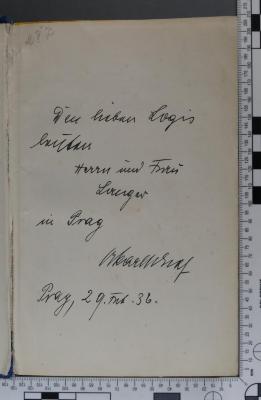 Den lieben Logis
leuten
Herrn und Frau
Langer
in Prag
Prag, 29. Feb. 36.